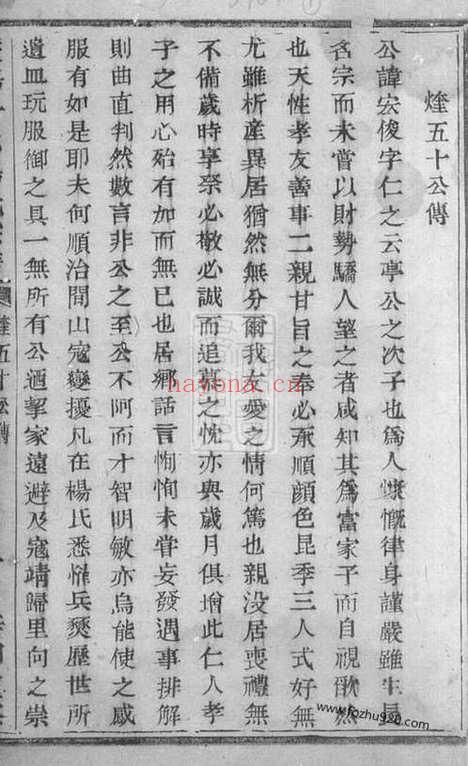 煃五十公傳
公諱宏俊字仁之云亭公之次子也爲人慷慨律身謹嚴雖生長
名宗而未嘗以財勢驕人望之者咸知其爲富家子而自視欿然
也天性孝友善事二親甘旨之奉必承順顏色昆季三人式好無
尤雖析產異居猶然無分爾我友愛之情何篤也親没居喪禮無
不備歲時享祭必敬必誠而追慕之忱亦與歲月俱增此仁人孝
子之用心殆有加而無已也居鄉話言恂恂未嘗妄發遇事排解
則曲直判然數言非公之至公不阿而才智明敏亦烏能使之感
服有如是耶夫何順治間山寇變擾凡在楊氏悉惟兵燹歷世所
遺血玩服御之具一無所有公迺挈家遠避及寇靖歸里向之崇
五十公傳
hayona.cn
www.fozhu920.com